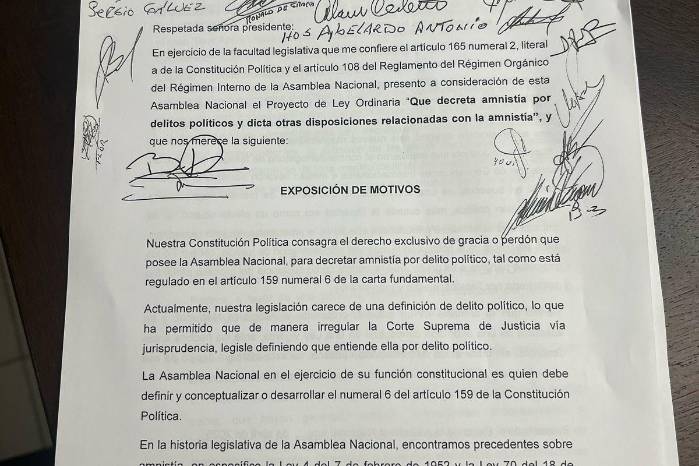 SERGIO GÁLVEZ
Respetada señora presidente:
HDS ABELARDO ANTONIO
En ejercicio de la facultad legislativa que me confiere el artículo 165 numeral 2, literal
a de la Constitución Política y el artículo 108 del Reglamento del Régimen Orgánico
del Régimen Interno de la Asamblea Nacional, presento a consideración de esta
Asamblea Nacional el Proyecto de Ley Ordinaria "Que decreta amnistía por
delitos políticos y dicta otras disposiciones relacionadas con la amnistía", y
que nos merece la siguiente:
EXPOSICIÓN DE MOTIVOS
Nuestra Constitución Política consagra el derecho exclusivo de gracia o perdón que
posee la Asamblea Nacional, para decretar amnistía por delito político, tal como está
regulado en el artículo 159 numeral 6 de la carta fundamental.
Actualmente, nuestra legislación carece de una definición de delito político, lo que
ha permitido que de manera irregular la Corte Suprema de Justicia vía
jurisprudencia, legisle definiendo que entiende ella por delito político.
La Asamblea Nacional en el ejercicio de su función constitucional es quien debe
definir y conceptualizar o desarrollar el numeral 6 del artículo 159 de la Constitución
Política.
En la historia legislativa de la Asamblea Nacional, encontramos precedentes sobre
amnistía, en específico la Ley 4 del 7 de febrero de 1952 y la Ley 70 del 18 de